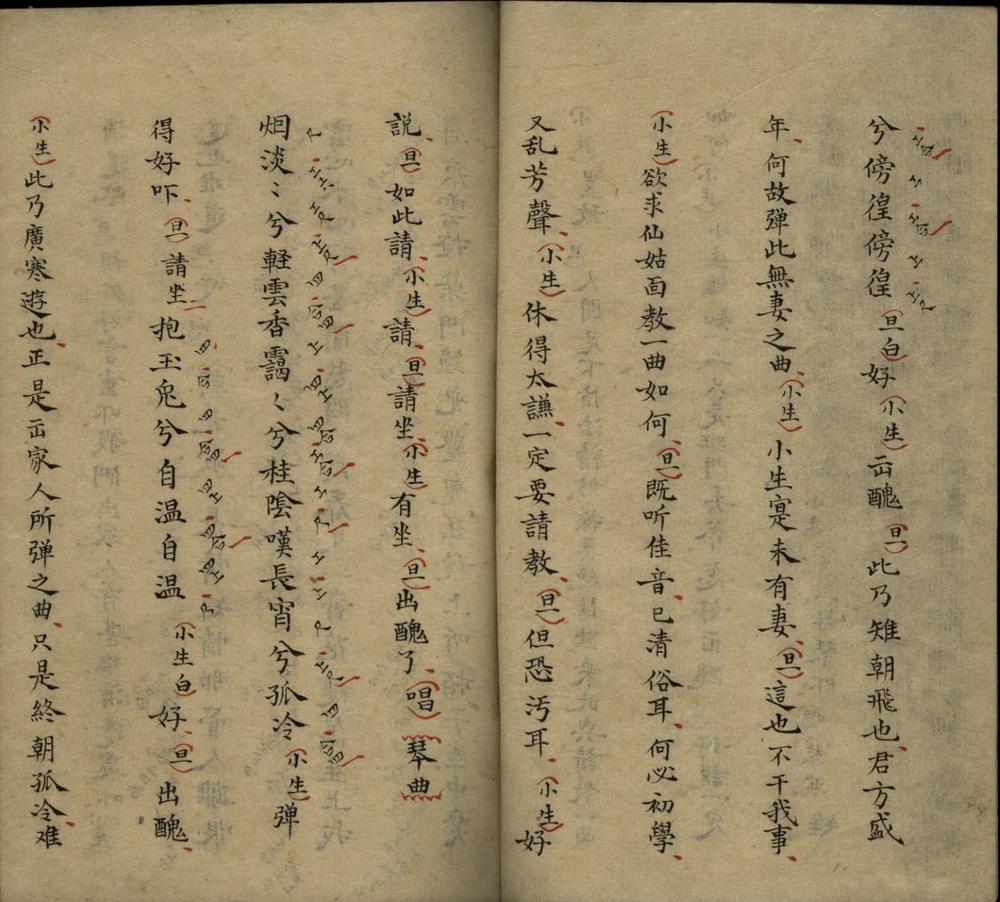 兮傍徨傍徨(旦白)好(小生)出醜(旦)此乃雉朝飛也君方盛
年何故弹此無妻之曲(小生)小生寔未有妻(旦)這也不干我事
(小生)欲求仙姑面教一曲如何(旦)既听佳音已清俗耳何必初學
又乱芳聲(小生)休得太謙一定要請教(旦)但恐汚耳(小生)好
説(旦)如此請(小生)請(旦)請坐(小生)有坐(旦)出醜了(唱)琴曲
烟淡〻兮軽雲香靄〻兮桂陰嘆長宵兮孤冷(小生)弹
得好吓(旦)請坐抱玉兎兮自温自温(小生白)好(旦)出醜
(小生)此乃廣寒遊也正是出家人所弹之曲只是終朝孤冷难